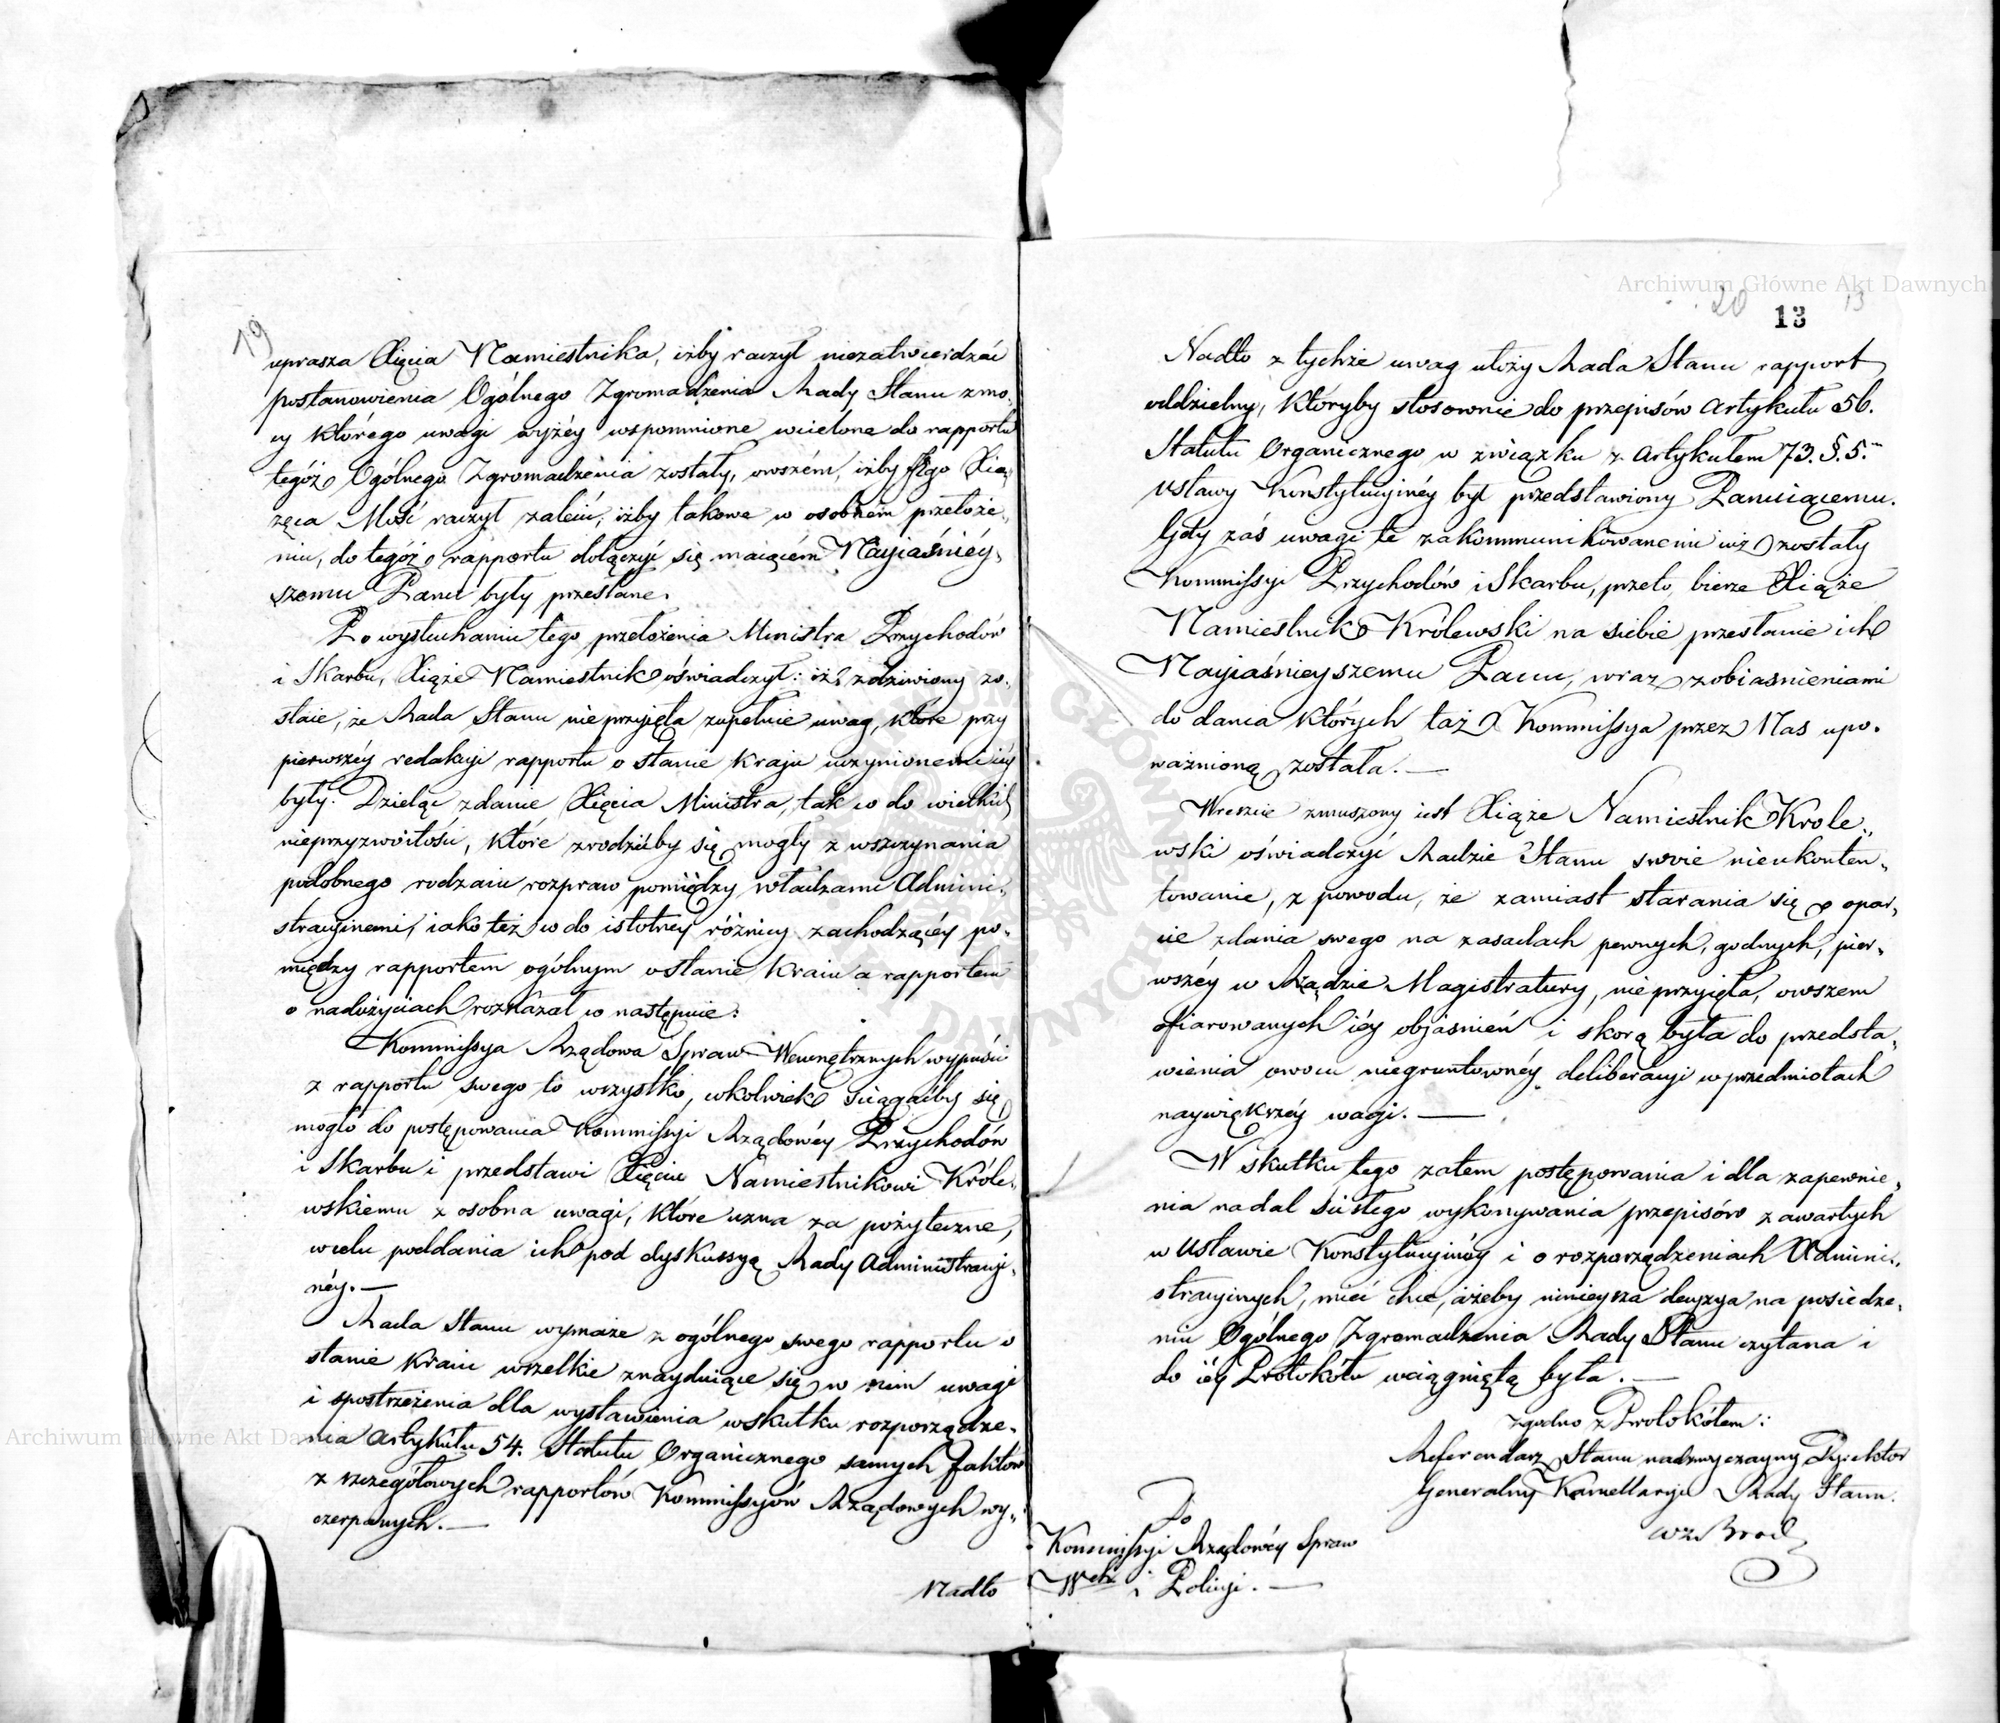 19
uprasza Xięcia Namiestnika, iżby raczył niezatwierdzać
postanowienia Ogólnego Zgromadzenia Rady Stanu z mo„
cy którego uwagi wyżéy wspomnione wcielone do rapportu
tegóż Ogólnego Zgromadzenia zostały, owszém, iżby Jego Xią„
żęca Mość raczył zalecić, iżby takowe w osobném przełoże„
niu, do tegóż rapportu dołączyć się maiącém Nayiaśniéy„
szemu Panu były przesłane.
Po wysłuchaniu tego przełożenia Ministra Przychodów
i Skarbu, Xiąże Namiestnik oświadczył: iż zdziwiony zo„
staie, że Rada Stanu nie przyięła zupełnie uwag, które przy
pierwszéy redakcyi rapportu o stanie Kraju uczynionemi iéy
były. Dzieląc zdanie Xięcia Ministra, tak co do wielkich
nieprzyzwoitości, które zrodzićby się mogły z wszczynania
podobnego rodzaiu rozpraw pomiędzy władzami Admini„
stracyinemi, iako też co do istotnéy różnicy zachodzącéy po„
między rapportem ogólnym o stanie Kraiu a rapportem
o nadużyciach rozkazał co następuie:
Kommissya Rządowa Spraw Wewnętrznych wypuści
z rapportu swego to wszystko, cokolwiek ściągaćby się
mogło do postępowania Kommissyi Rządowéy Przychodów
i Skarbu i przedstawi Xięciu Namiestnikowi Króle„
wskiemu z osobna uwagi, które uzna za pożyteczne,
w celu poddania ich pod dyskussyą Rady Administracyi„
néy. —
Rada Stanu wymaże z ogólnego swego rapportu o
stanie Kraiu wszelkie znayduiące się w nim uwagi
i spostrzeżenia dla wystawienia wskutku rozporządze„
nia Artykułu 54. Statutu Organicznego samych faktów
z szczegółowych rapportów Kommissyów Rządowych wy„
czerpanych. —
Nadto
20
13
13
Nadto z tychże uwag ułoży Rada Stanu rapport
oddzielny, któryby stosownie do przepisów Artykułu 56.
Statutu Organicznego w związku z Artykułem 73. §. 5.
Ustawy Konstytucyinéy był przedstawiony Panuiącemu.
Gdy zaś uwagi te zakommunikowanemi iuż zostały
Kommissyi Przychodów i Skarbu, przeto, bierze Xiąże
Namiestnik Królewski na siebie przesłanie ich
Nayiaśnieyszemu Panu, wraz z obiaśnieniami
do dania których taż Kommissya przez Nas upo„
ważnioną została. —
Wreszcie zmuszony iest Xiąże Namiestnik Króle„
wski oświadczyć Radzie Stanu swoie nieukonten„
towanie, z powodu, że zamiast starania się o opar„
cie zdania swego na zasadach pewnych, godnych, pier„
wszéy w Rządzie Magistratury, nie przyięła, owszem
ofiarowanych iéy objaśnień i skorą była do przedsta„
wienia owocu niegruntownéy deliberacyi w przedmiotach
naywiększéy wagi. —
W skutku tego zatem postępowania i dla zapewnie„
nia nadal ścisłego wykonywania przepisów zawartych
w Ustawie Konstytucyinéy i o rozporządzeniach Admini„
stracyinych, mieć chce, ażeby ninieysza decyzya na posiedze„
niu Ogólnego Zgromadzenia Rady Stanu czytana i
do iéy Protokółu wciągniętą była. —
zgodno z Protokółem:
Referendarz Stanu nadzwyczayny Dyrektor
Generalny Kancellaryi Rady Stanu.
Do
Kommissyi Rządowéy Spraw
Wch i Policyi. —
Archiwum Główne Akt Dawnych